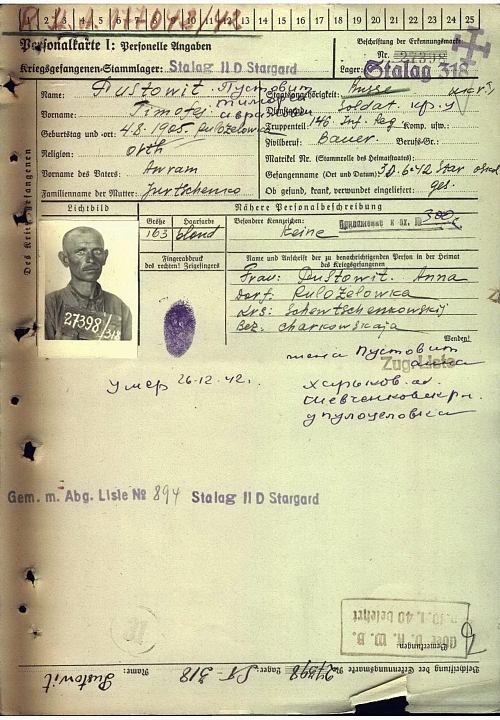 1 2 3 4 5 6 7 8 9 10 11 12 13 14 15 16 17 18 19 20 21 22 23 24 25
Personalkarte I: Personelle Angaben
Kriegsgefangenen-Stammlager: Stalag II D Stargard
Beschriftung der Erkennungsmarke
Nr. 27398
Lager: Stalag 318
Des Kriegsgefangenen
Name: Pustowit. Пустовит
Vorname: Timofej Тимофей
Geburtstag und -ort: 4.8.1905.
Religion: orth
Vorname des Vaters: Awram
Familienname der Mutter: Jurtschenko
Staatsangehörigkeit: Russe
Dienstgrad: Soldat. кр-ц
Truppenteil: 146. Inf. Reg Komp. usw.:
Zivilberuf: Bauer Berufs-Gr.:
Matrikel Nr. (Stammrolle des Heimatstaates):
Gefangennahme (Ort und Datum): 30.6.42
Ob gesund, krank, verwundet eingeliefert: ges.
Lichtbild
27398/318
Nähere Personalbeschreibung
Größe Haarfarbe Besondere Kennzeichen:
163 blond Keine
Fingerabdruck
des rechten! Zeigefingers
Name und Anschrift der zu benachrichtigenden Person in der Heimat
des Kriegsgefangenen
Frau: Pustowit. Anna
Dorf:
Krs: Schewtschenkowskij
Bez. Charkowskaja
Wenden!
жена Пустовит
Zug-Liste
Умер 26.12.42.
Харьков. об.
Gem. m. Abg. Lisle № 894 Stalag II D Stargard
Über D. K. W. B.
10. 1. 40 belehrt
Bemerkungen
Beschriftung der Erkennungsmarke Nr. 27398 Lager: St-318 Name: Pustowit